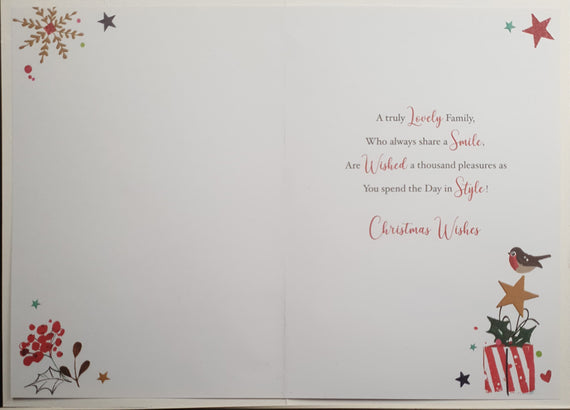 A truly Lovely Family,
Who always share a Smile,
Are Wished a thousand pleasures as
You spend the Day in Style!
Christmas Wishes